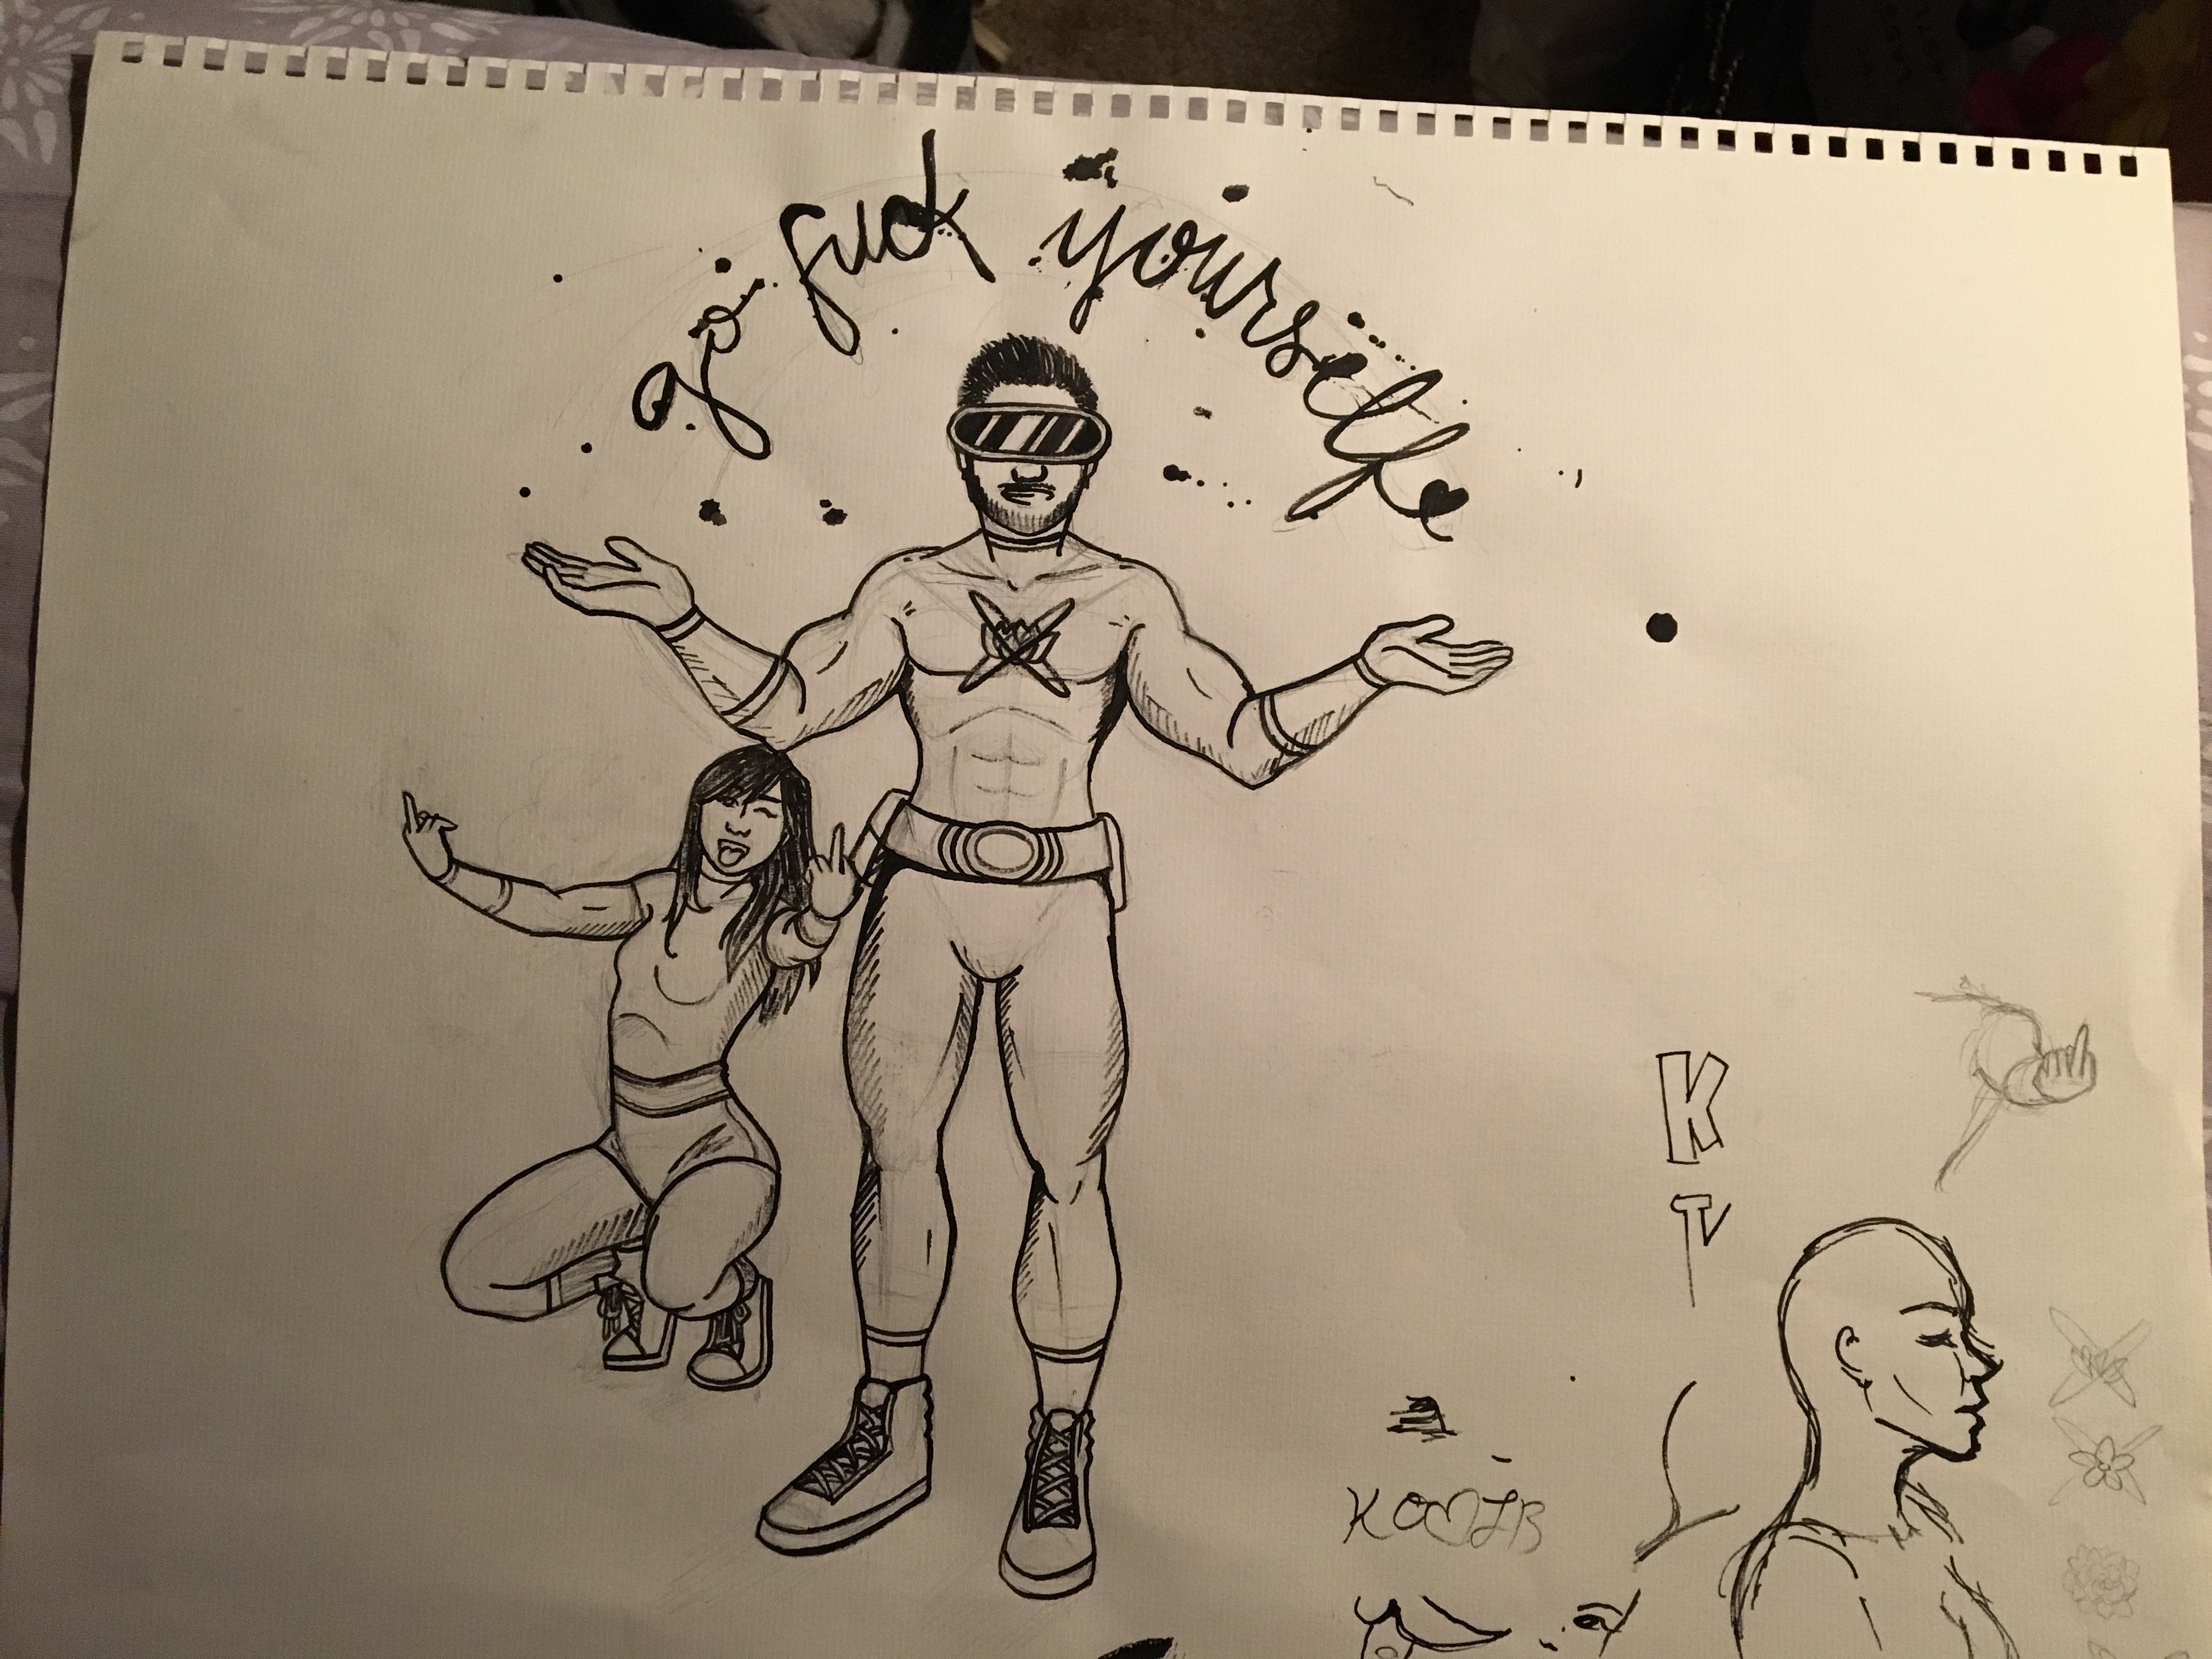 go fuck yourselfe
K
T
KO♡LB